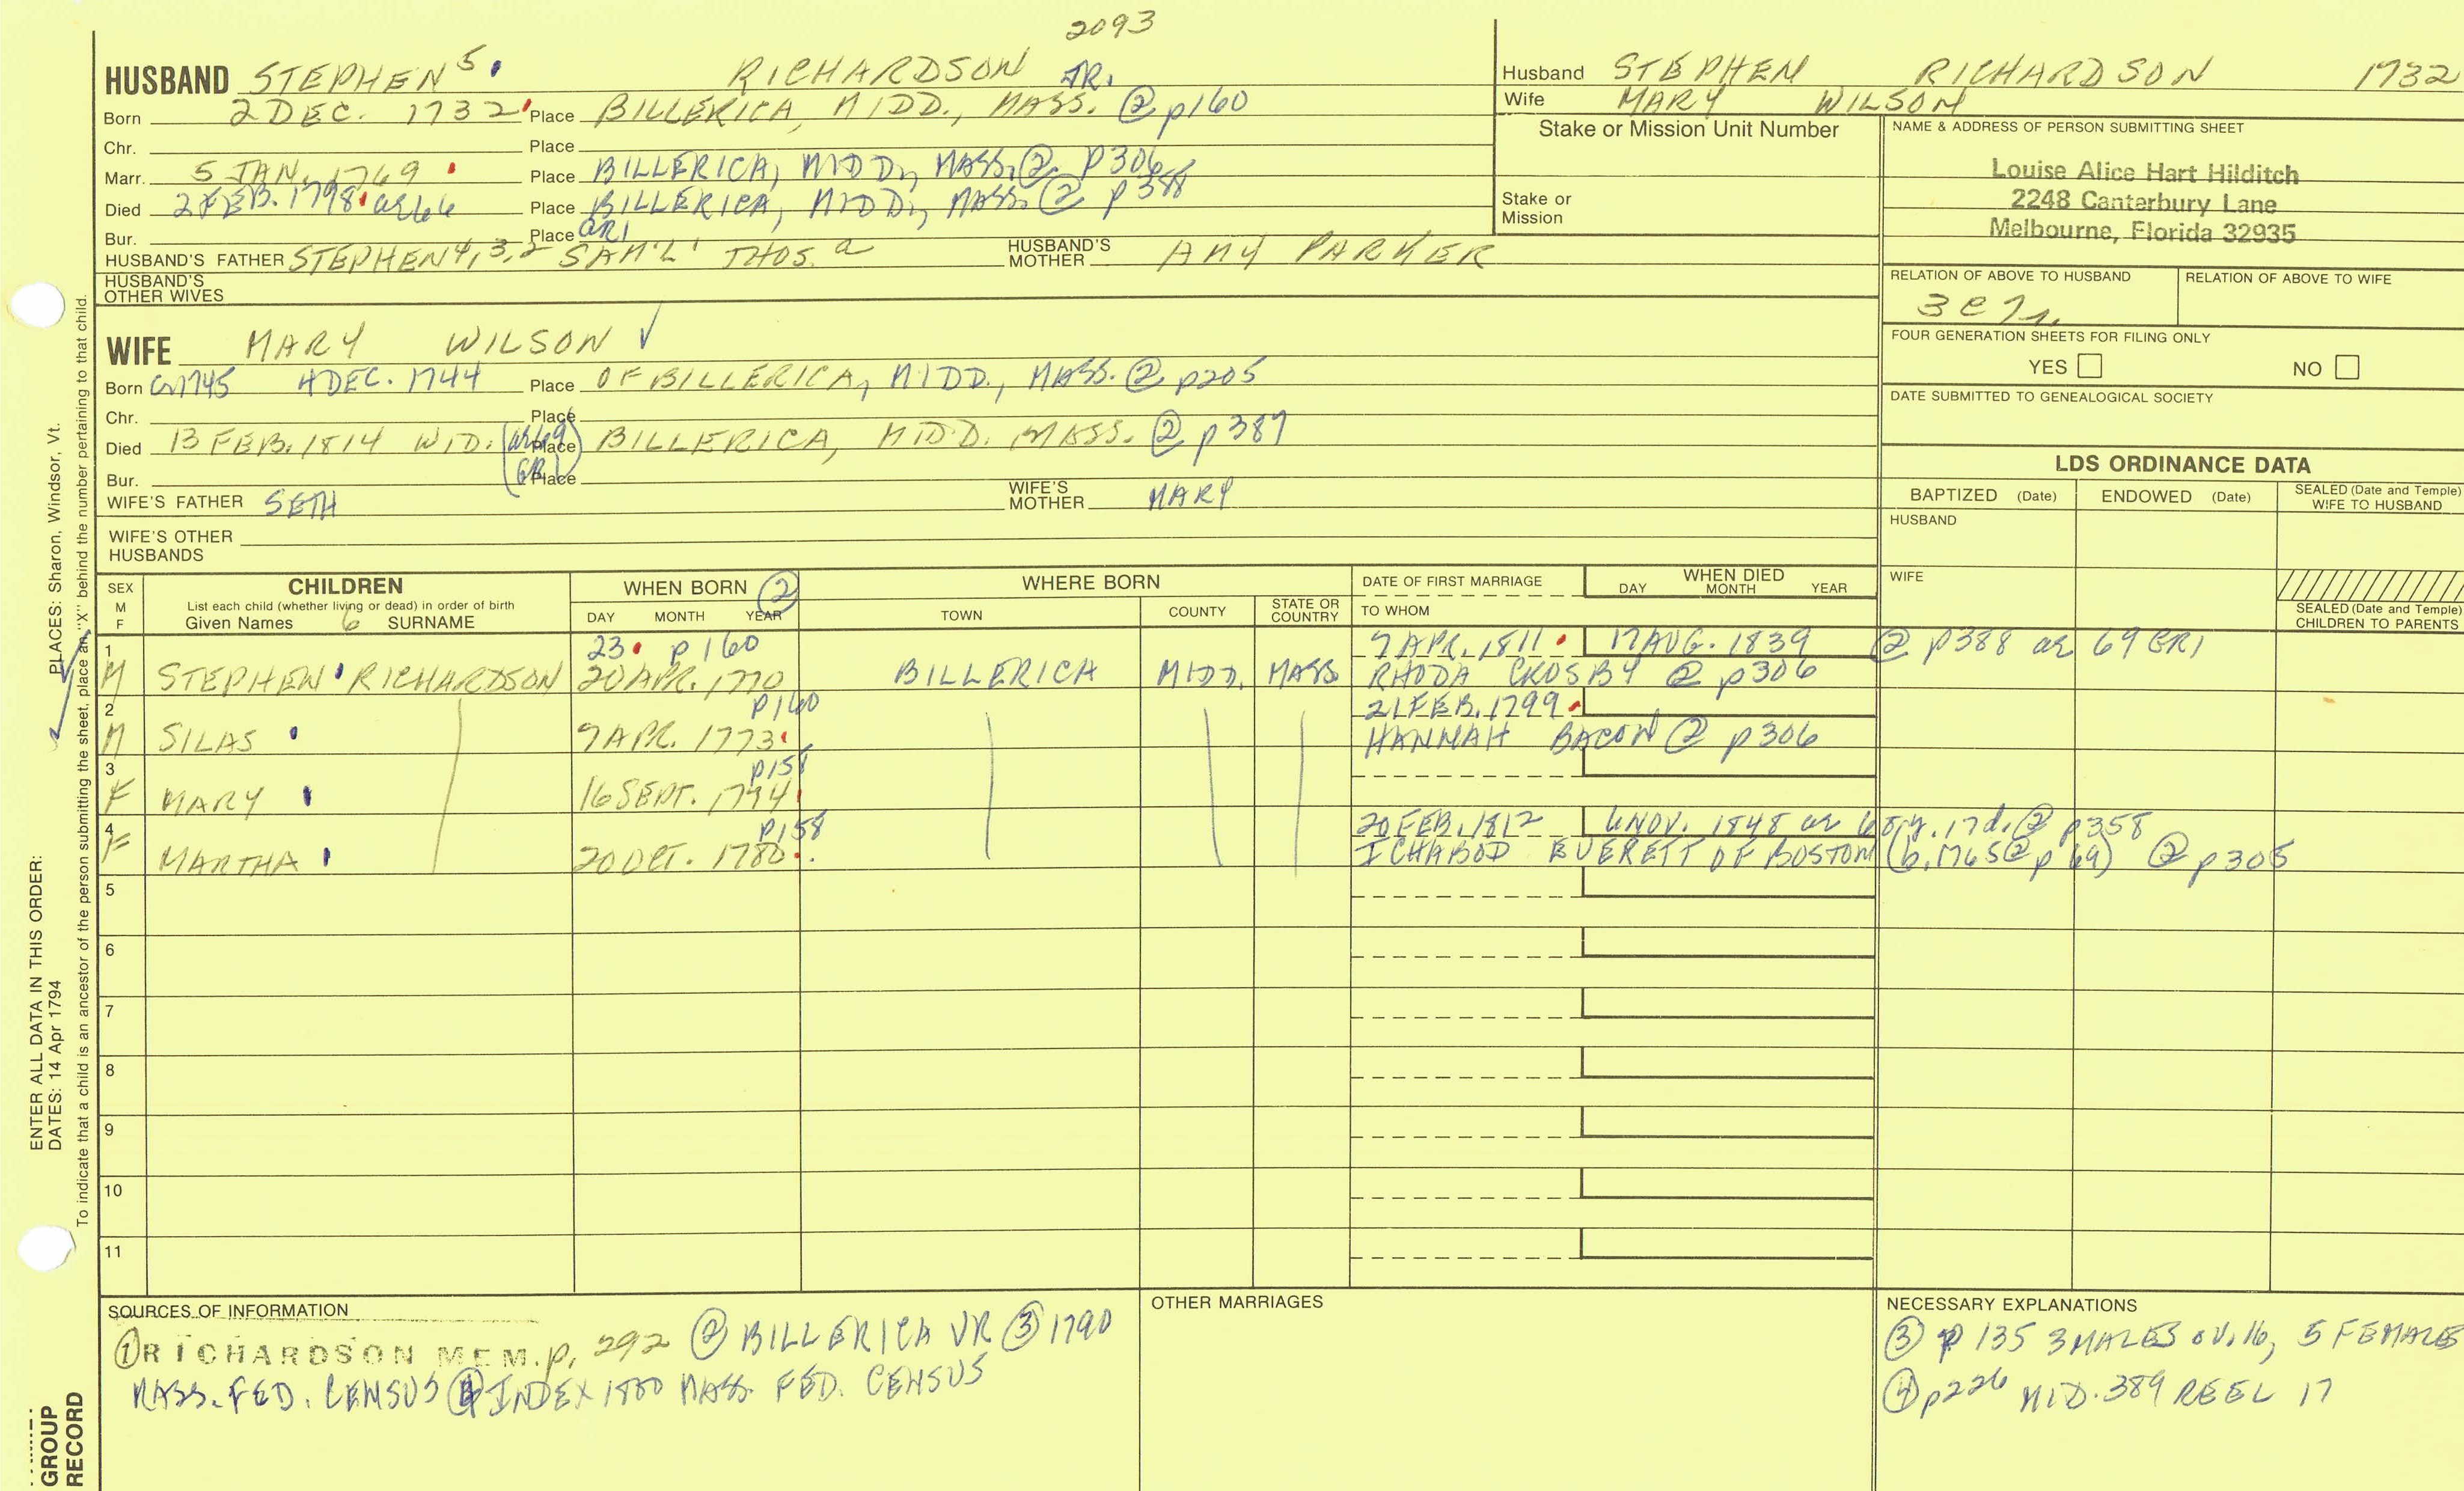 2093
HUSBAND STEPHEN 5. RICHARDSON JR.
Born 2 DEC. 1732 Place BILLERICA, MIDD., MASS. @ p160
Chr. Place
Marr. 5 JAN. 1769 Place BILLERICA, MIDD, MASS. ② p306
Died 2 FEB. 1798 ae 66 Place BILLERICA, MIDD, MASS. ② p388
Bur. Place GR1
HUSBAND'S FATHER STEPHEN 4,3,2 SAM'L 1 THOS. a HUSBAND'S MOTHER AMY PARKER
HUSBAND'S OTHER WIVES
Husband STEPHEN RICHARDSON 1732
Wife MARY WILSON
Stake or Mission Unit Number
Stake or Mission
NAME & ADDRESS OF PERSON SUBMITTING SHEET
Louise Alice Hart Hilditch
2248 Canterbury Lane
Melbourne, Florida 32935
RELATION OF ABOVE TO HUSBAND RELATION OF ABOVE TO WIFE
FOUR GENERATION SHEETS FOR FILING ONLY
YES NO
DATE SUBMITTED TO GENEALOGICAL SOCIETY
WIFE MARY WILSON √
Born 1745 4 DEC. 1744 Place OF BILLERICA, MIDD., MASS. ② p205
Chr. Place
Died 13 FEB. 1814 WID. (ae 69 Place BILLERICA, MIDD. MASS. ② p387
Bur. GR1) Place
WIFE'S FATHER SETH WIFE'S MOTHER MARY
WIFE'S OTHER HUSBANDS
LDS ORDINANCE DATA
BAPTIZED (Date) ENDOWED (Date) SEALED (Date and Temple) WIFE TO HUSBAND
HUSBAND
WIFE
SEALED (Date and Temple) CHILDREN TO PARENTS
SEX M F CHILDREN WHEN BORN ② WHERE BORN DATE OF FIRST MARRIAGE WHEN DIED
List each child (whether living or dead) in order of birth
Given Names 6 SURNAME DAY MONTH YEAR TOWN COUNTY STATE OR COUNTRY TO WHOM DAY MONTH YEAR
1 23 p160 7 APR. 1811 17 AUG. 1839 @ p388 ae 69 GR1
M STEPHEN RICHARDSON 20 APR. 1770 BILLERICA MIDD. MASS RHODA CROSBY ② p306
2 p160 21 FEB. 1799
M SILAS 7 APR. 1773 HANNAH BACON ② p306
3 p158
F MARY 16 SEPT.
4 p158 20 FEB. 1812 6 NOV. 1848 ae 68y. 17d. ② p358
F MARTHA 20 OCT. 1780 ICHABOD EVERETT OF BOSTON (b. 1765 @ p69) ② p305
5
6
7
8
9
10
11
SOURCES OF INFORMATION
① RICHARDSON MEM. p. 292 ② BILLERICA VR ③ 1790
MASS. FED. CENSUS ④ INDEX 1800 MASS. FED. CENSUS
OTHER MARRIAGES
NECESSARY EXPLANATIONS
③ p 135 3 MALES ov. 16, 5 FEMALES
④ p226 MID. 389 REEL 17
ENTER ALL DATA IN THIS ORDER:
DATES: 14 Apr 1794 PLACES: Sharon, Windsor, Vt.
To indicate that a child is an ancestor of the person submitting the sheet, place an "X" behind the number pertaining to that child.
GROUP
RECORD